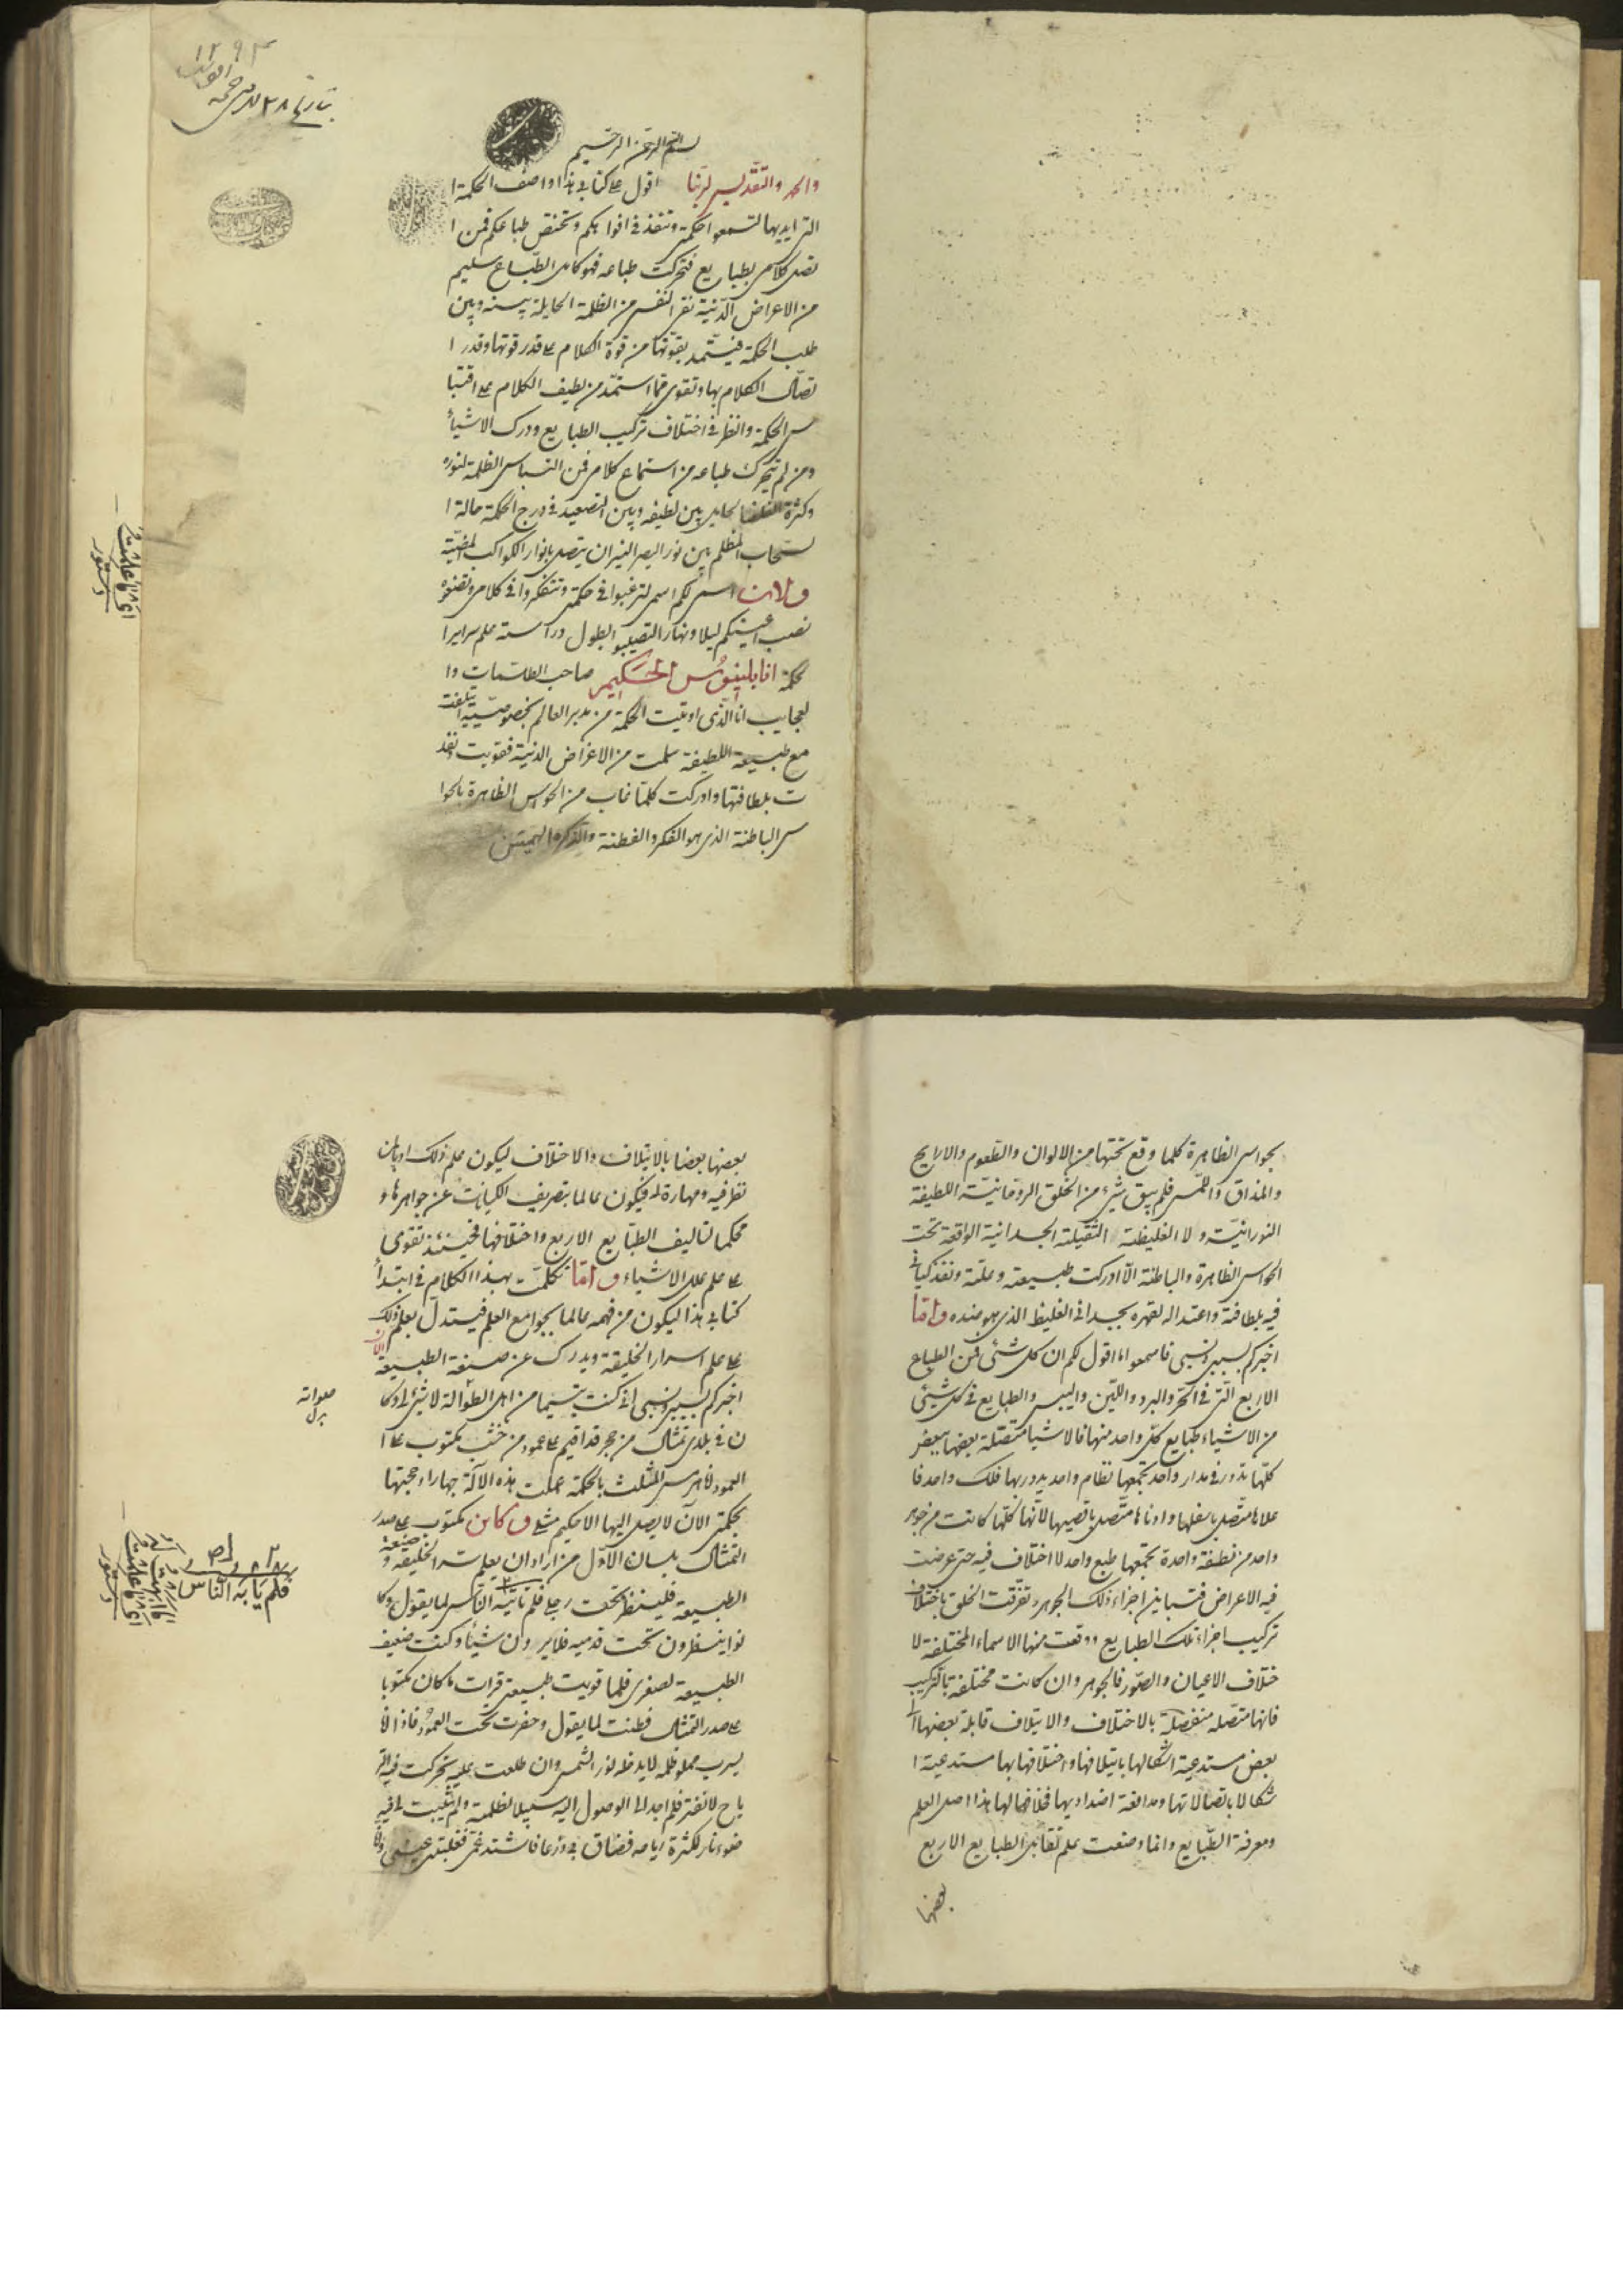 ١٢٩٣
بسم الله الرحمن الرحيم
والحمد والتقديس لربنا اقول على كتابى هذا واصف الحكمة ا
التى ايد بها لتسمعوا حكمتى وتنفذ فى افواهكم وتختص طباعكم فمن ا
تصل كلامى بطبايع فتحركت طباعه فهو كامل الطباع سليم
من الاعراض الدنية نقى النفس من الظلمة الحايلة بينه وبين
طلب الحكمة فيستمد بقوتها من قوة الكلام على قدر قوتها وقدر ا
تصال الكلام بها وتقوى مما استمد من لطيف الكلام على اقتبا
س الحكمة والنظر فى اختلاف تركيب الطبايع ودرك الاشياء
ومن لم يتحرك طباعه من استماع كلامى فمن التباس الظلمة لنوره
وكثرة الغلظ الحايل بين لطيفه وبين التصعيد فى درج الحكمة حالة ا
لسحاب المظلم بين نور البصر النير ان يتصل بانوار الكواكب المضيّة
والان اسمى لكم اسمى لترغبوا فى حكمتى وتتفكروا فى كلامى وتضعوه
نصب اعينكم ليلا ونهارا لتصيبوا بطول دراسته علم سراير ا
لحكمة انا بلينوس الحكيم صاحب الطلسمات وا
لعجايب انا الذى اوتيت الحكمة من مدبر العالم بخصوصيته
مع طبيعة اللطيفة سلمت من الاعراض الدنية فقويت ونفذ
ت بلطافتها وادركت كلما غاب من الحواس الظاهرة بالحوا
س الباطنة الذى هو الفكر والفطنة والذكر
بحواس الظاهرة كلما وقع تحتها من الالوان والطعوم والاراييح
والمذاق واللمس فلم يبق شىء من الخلق الروحانية اللطيفة
النورانية ولا الغليظة الثقيلة الجسدانية الواقعة تحت
الحواس الظاهرة والباطنة الا ادركت طبيعته وعلته ونفذ كيانى
فيه بلطافته واعتداله لقهره بجسدانى الغليظ الذى هو ضده واما
اخبركم بسببى ونسبى فاسمعوا ما اقول لكم ان كل شئ من الطباع
الاربع التى فى الحر والبرد واللين واليبس والطبايع فى كل شئ
من الاشياء طبايع كل واحد منها فالاشيا متصلة بعضها ببعض
كلها تدور فى مدار واحد يجمعها نظام واحد يدور بها فلك واحد فا
علاها متصل باسفلها وادناها متصل باقصيها لانها كلها كانت من جوهر
واحد من نطفة واحدة يجمعها طبع واحد لا اختلاف فيه حتى عرضت
فيه الاعراض فتباين اجزاء ذلك الجوهر وتفرقت الخلق باختلاف
تركيب اجزاء تلك الطبايع ووقعت منها الاسماء المختلفة لا
ختلاف الاعيان والصور فالجوهر وان كانت مختلفة بالتركيب
فانها متصله منفصلة بالاختلاف والايتلاف قابلة بعضها
بعض مستدعية اشكالها بايتلافها واختلافها بها مستدعية ا
شكالا باتصالاتها ومدافعة اضدادها بخلافها لها هذا اصل العلم
ومعرفة الطبايع وانما وضعت علم تقابل الطبايع الاربع
بعضها
بعضها بعضا بالايتلاف والاختلاف ليكون علم ذلك
نظر فيه ومهارة له فيكون عالما بتصريف الكيانات عن جواهرها و
محكما لتاليف الطبايع الاربع واختلافها فحينئذ تقوى
على علم علل الاشياء وانما تكلمت بهذا الكلام فى ابتداء
كتابى هذا ليكون من فهمه عالما بجوامع العلم فيستدل بعلم ذلك
على علم اسرار الخليقة ويدرك عن صنعة الطبيعة الان
اخبركم بسببى ونسبى انى كنت يتيما من اهل الطوانة لا شئ لى وكا
ن فى بلدى تمثال من حجر قد اقيم على عمود من خشب مكتوب على ا
لعمود انا هرمس المثلث بالحكمة عملت هذه الآلة جهارا وحجبتها
بحكمتى الان لا يصل اليها الا حكيم مثلى وكان مكتوب على صدر
التمثال بلسان الاول من اراد ان يعلم سر الخليقة وصنعة
الطبيعة فلينظر تحت رجلى فلم يأبه الناس لما يقول وكا
نوا ينظرون تحت قدميه فلا يرون شيئا وكنت ضعيف
الطبيعة لصغرى فلما قويت طبيعتى قرات ما كان مكتوبا
على صدر التمثال فطنت لما يقول وحفرت تحت العمود فاذا انا
بسرب مملو ظلمة لا يدخله نور الشمس وان طلعت عليه تحركت فيه الر
ياح لا تفتر فلم اجد الى الوصول اليه سبيلا لظلمته ولم يثبت لى فيه
ضوء نار لكثرة رياحه فضاق بى ذرعا فاشتد غمى فغلبتنى عينى وانا
فلم يأبه الناس